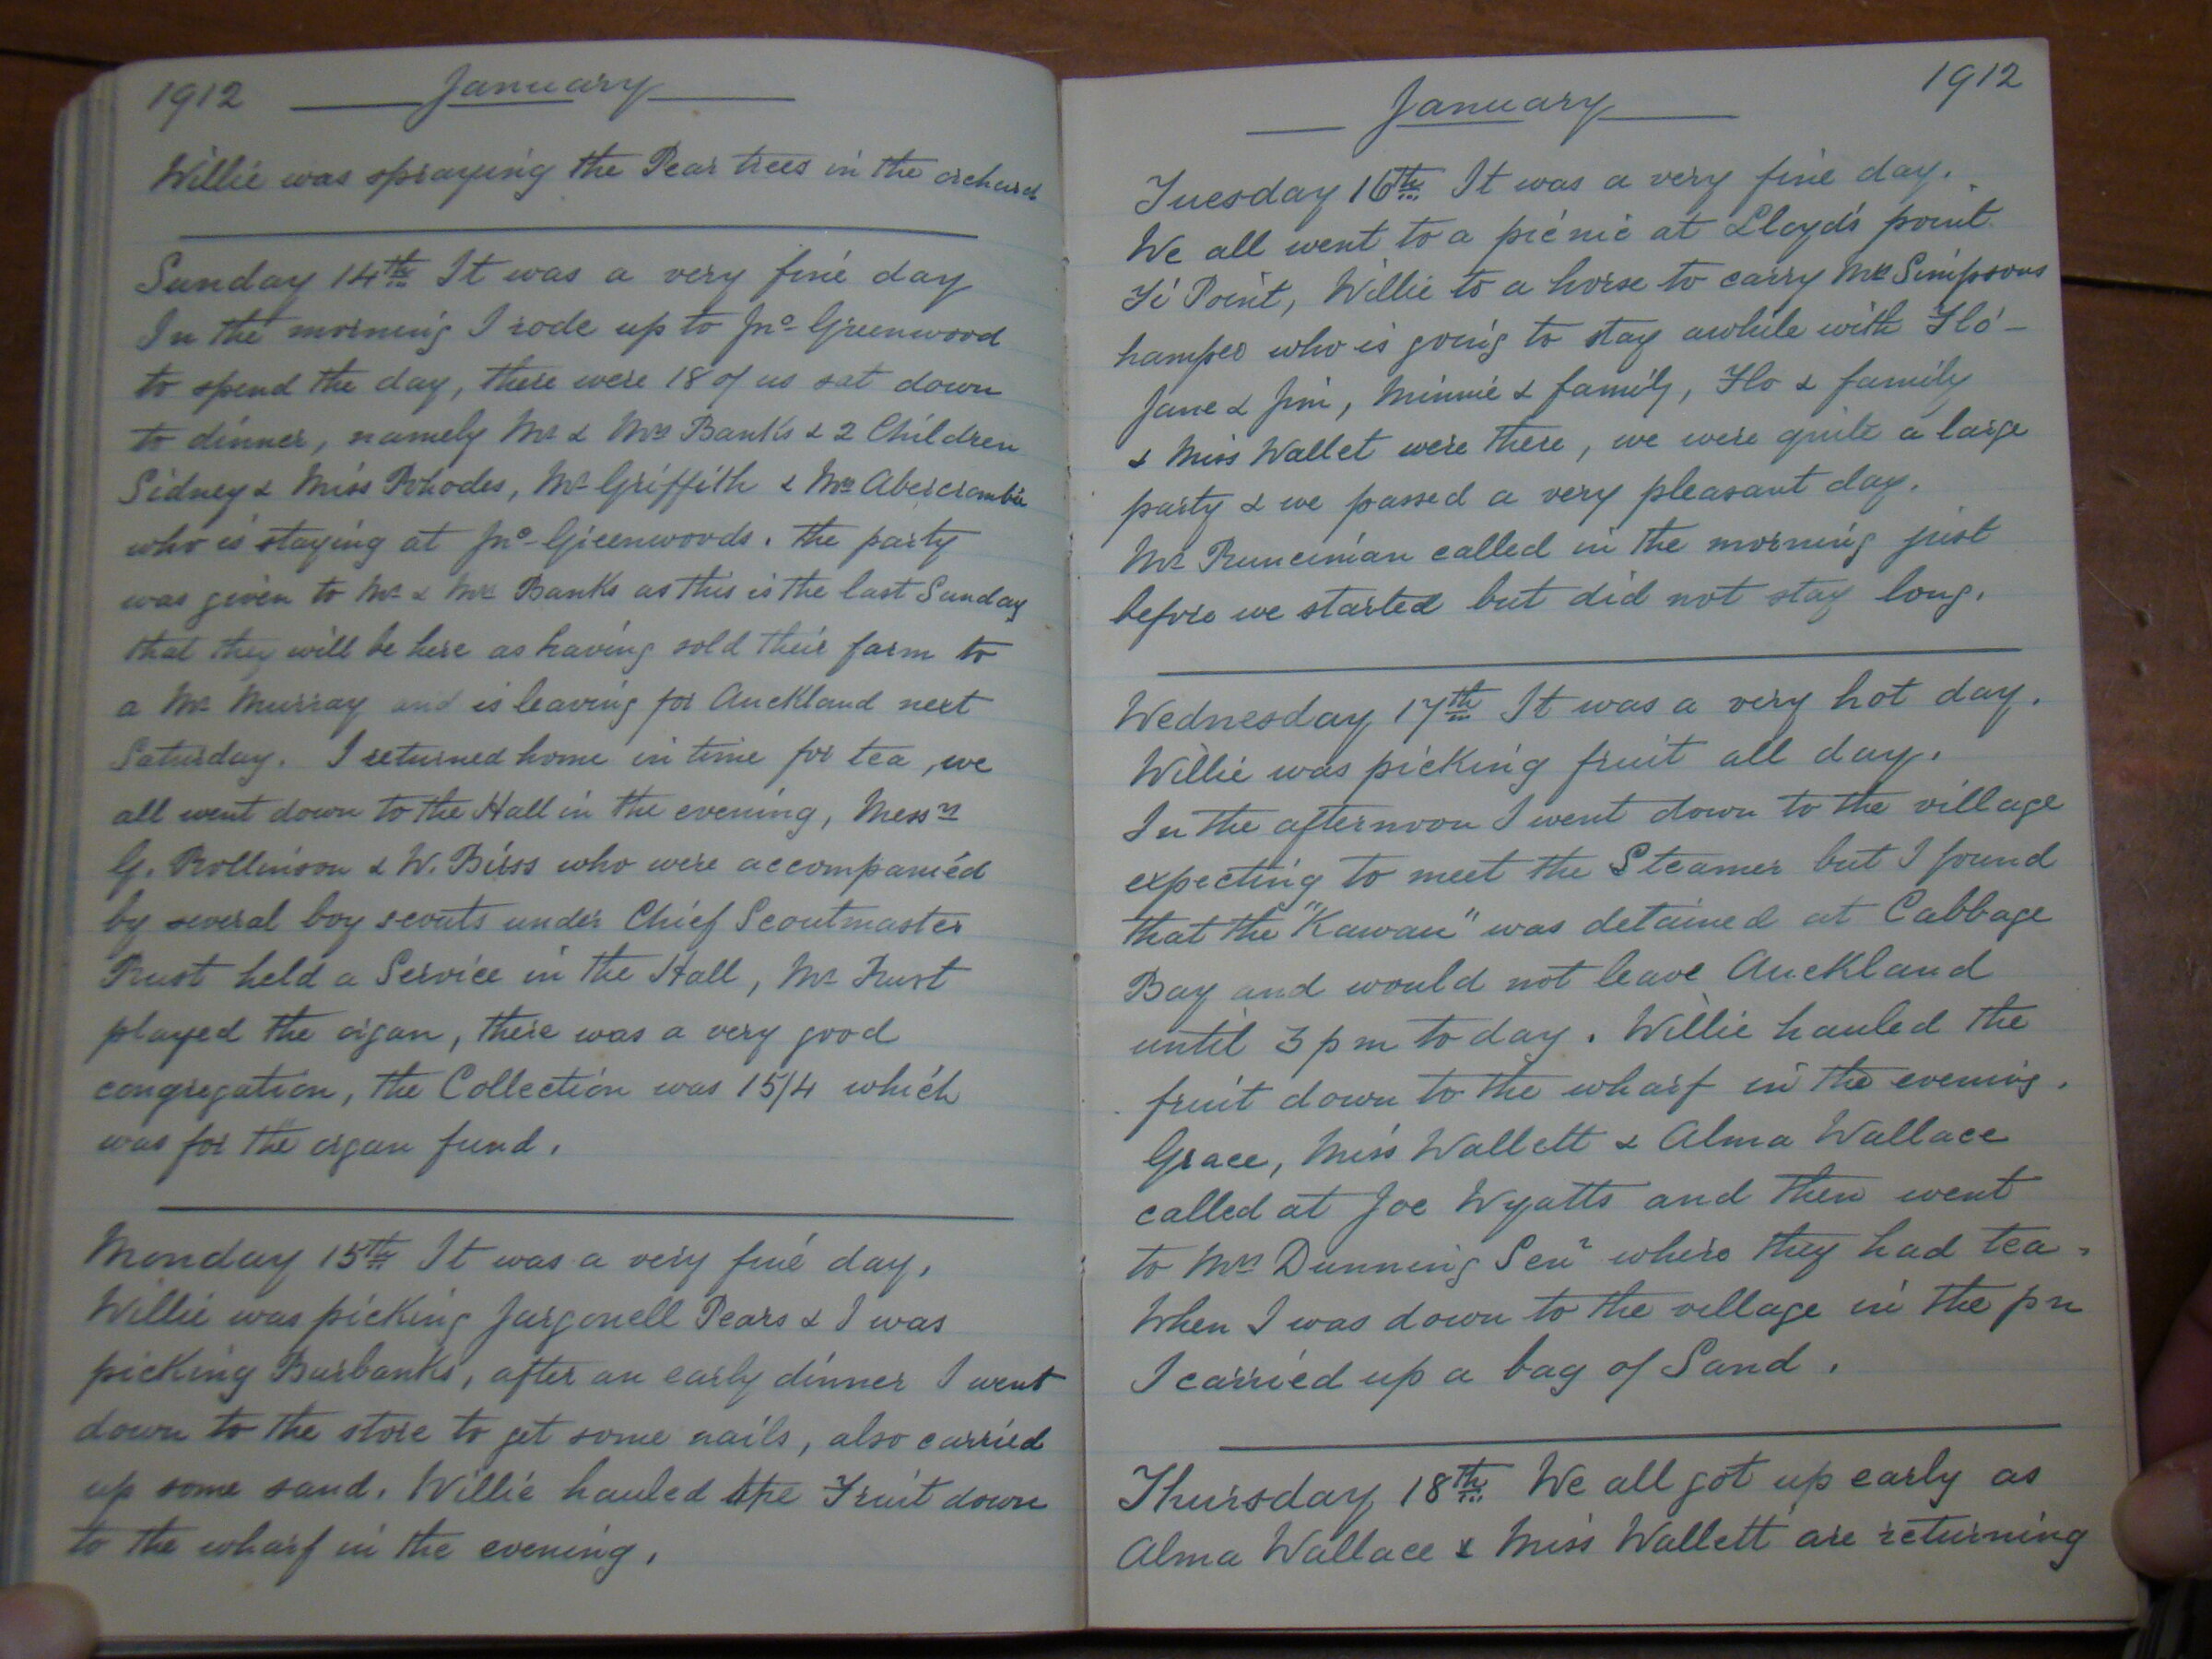 1912 January
Willie was spraying the Pear trees in the orchard
Sunday 14th It was a very fine day
In the morning I rode up to Jno Greenwood
to spend the day, there were 18 of us sat down
to dinner, namely Mr & Mrs Banks & 2 Children
Sidney & Miss Rhodes, Mr Griffith & Mrs Abercrombie
who is staying at Jno Greenwoods. the party
was given to Mr & Mrs Banks as this is the last Sunday
that they will be here as having sold their farm to
a Mr Murray and is leaving for Auckland next
Saturday. I returned home in time for tea, we
all went down to the Hall in the evening, Messrs
G. Rollinson & W. Birss who were accompanied
by several boy scouts under Chief Scoutmaster
Trust held a Service in the Hall, Mr Trust
played the organ, there was a very good
congregation, the Collection was 15/4 which
was for the organ fund.
Monday 15th It was a very fine day,
Willie was picking Jargonell Pears & I was
picking Burbanks, after an early dinner I went
down to the store to get some nails, also carried
up some sand. Willie hauled the Fruit down
to the wharf in the evening.
January 1912
Tuesday 16th It was a very fine day.
We all went to a picnic at Lloyds point
Ti Point, Willie to a horse to carry Mrs Simpsons
hamper who is going to stay awhile with Flo -
Jane & Jim, Minnie & family, Flo & family
& Miss Wallet were there, we were quite a large
party & we passed a very pleasant day.
Mr Runciman called in the morning just
before we started but did not stay long.
Wednesday 17th It was a very hot day.
Willie was picking fruit all day.
In the afternoon I went down to the village
expecting to meet the Steamer but I found
that the "Kawau" was detained at Cabbage
Bay and would not leave Auckland
until 3 pm to day. Willie hauled the
fruit down to the wharf in the evening.
Grace, Miss Wallett & Alma Wallace
called at Joe Wyatts and then went
to Mrs Dunning Senr where they had tea.
When I was down to the village in the pm
I carried up a bag of Sand.
Thursday 18th We all got up early as
Alma Wallace & Miss Wallett are returning